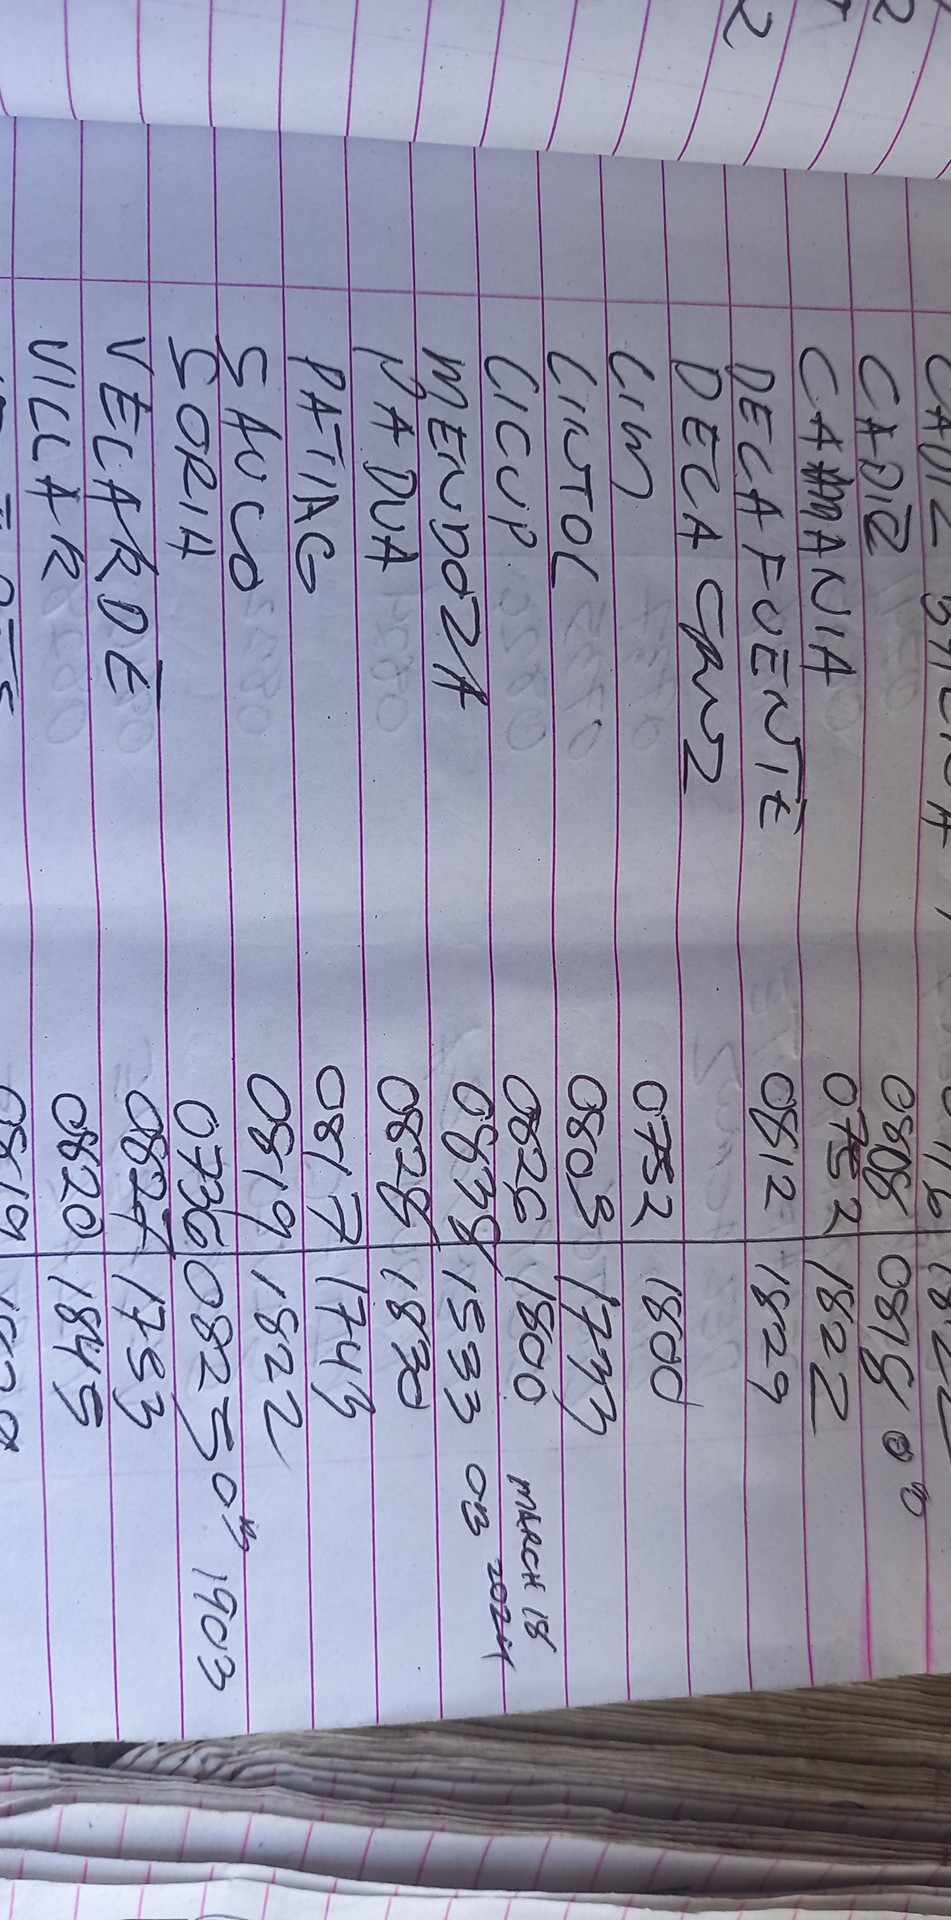 CADIZ 0808 0818 OB
CAMANIA 0752 1822
DELAFUENTE 0812 1829
DELA CRUZ
LIM 0752 1800
LINTOL 0803 1733
LICUP 0826 1800 MARCH 18
MENDOZA 0838 1533 OB 2024
PADUA 0828 1830
PATIAG 0817 1743
SAULO 0819 1822
SORIA 0736 0825 OB 1903
VELARDE 0827 1753
VILLAR 0820 1845
0819